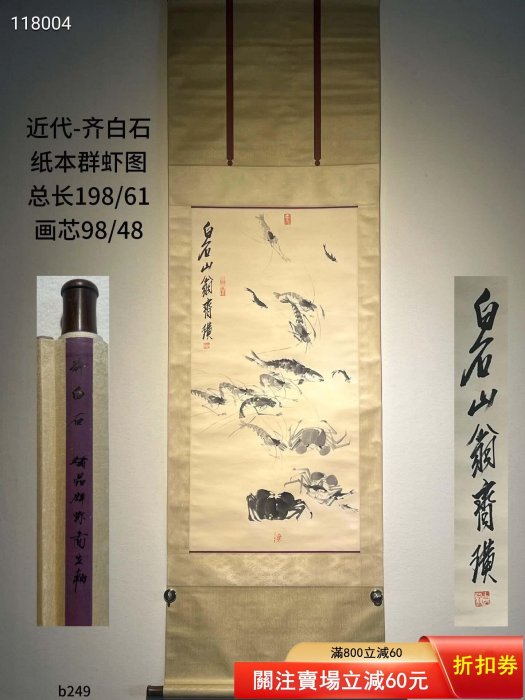 118004
近代-齐白石
纸本群虾图
总长198/61
画芯98/48
白石山翁齊璜
白石山翁齊璜
b249
滿800立減60
關注賣場立減60元
折扣券